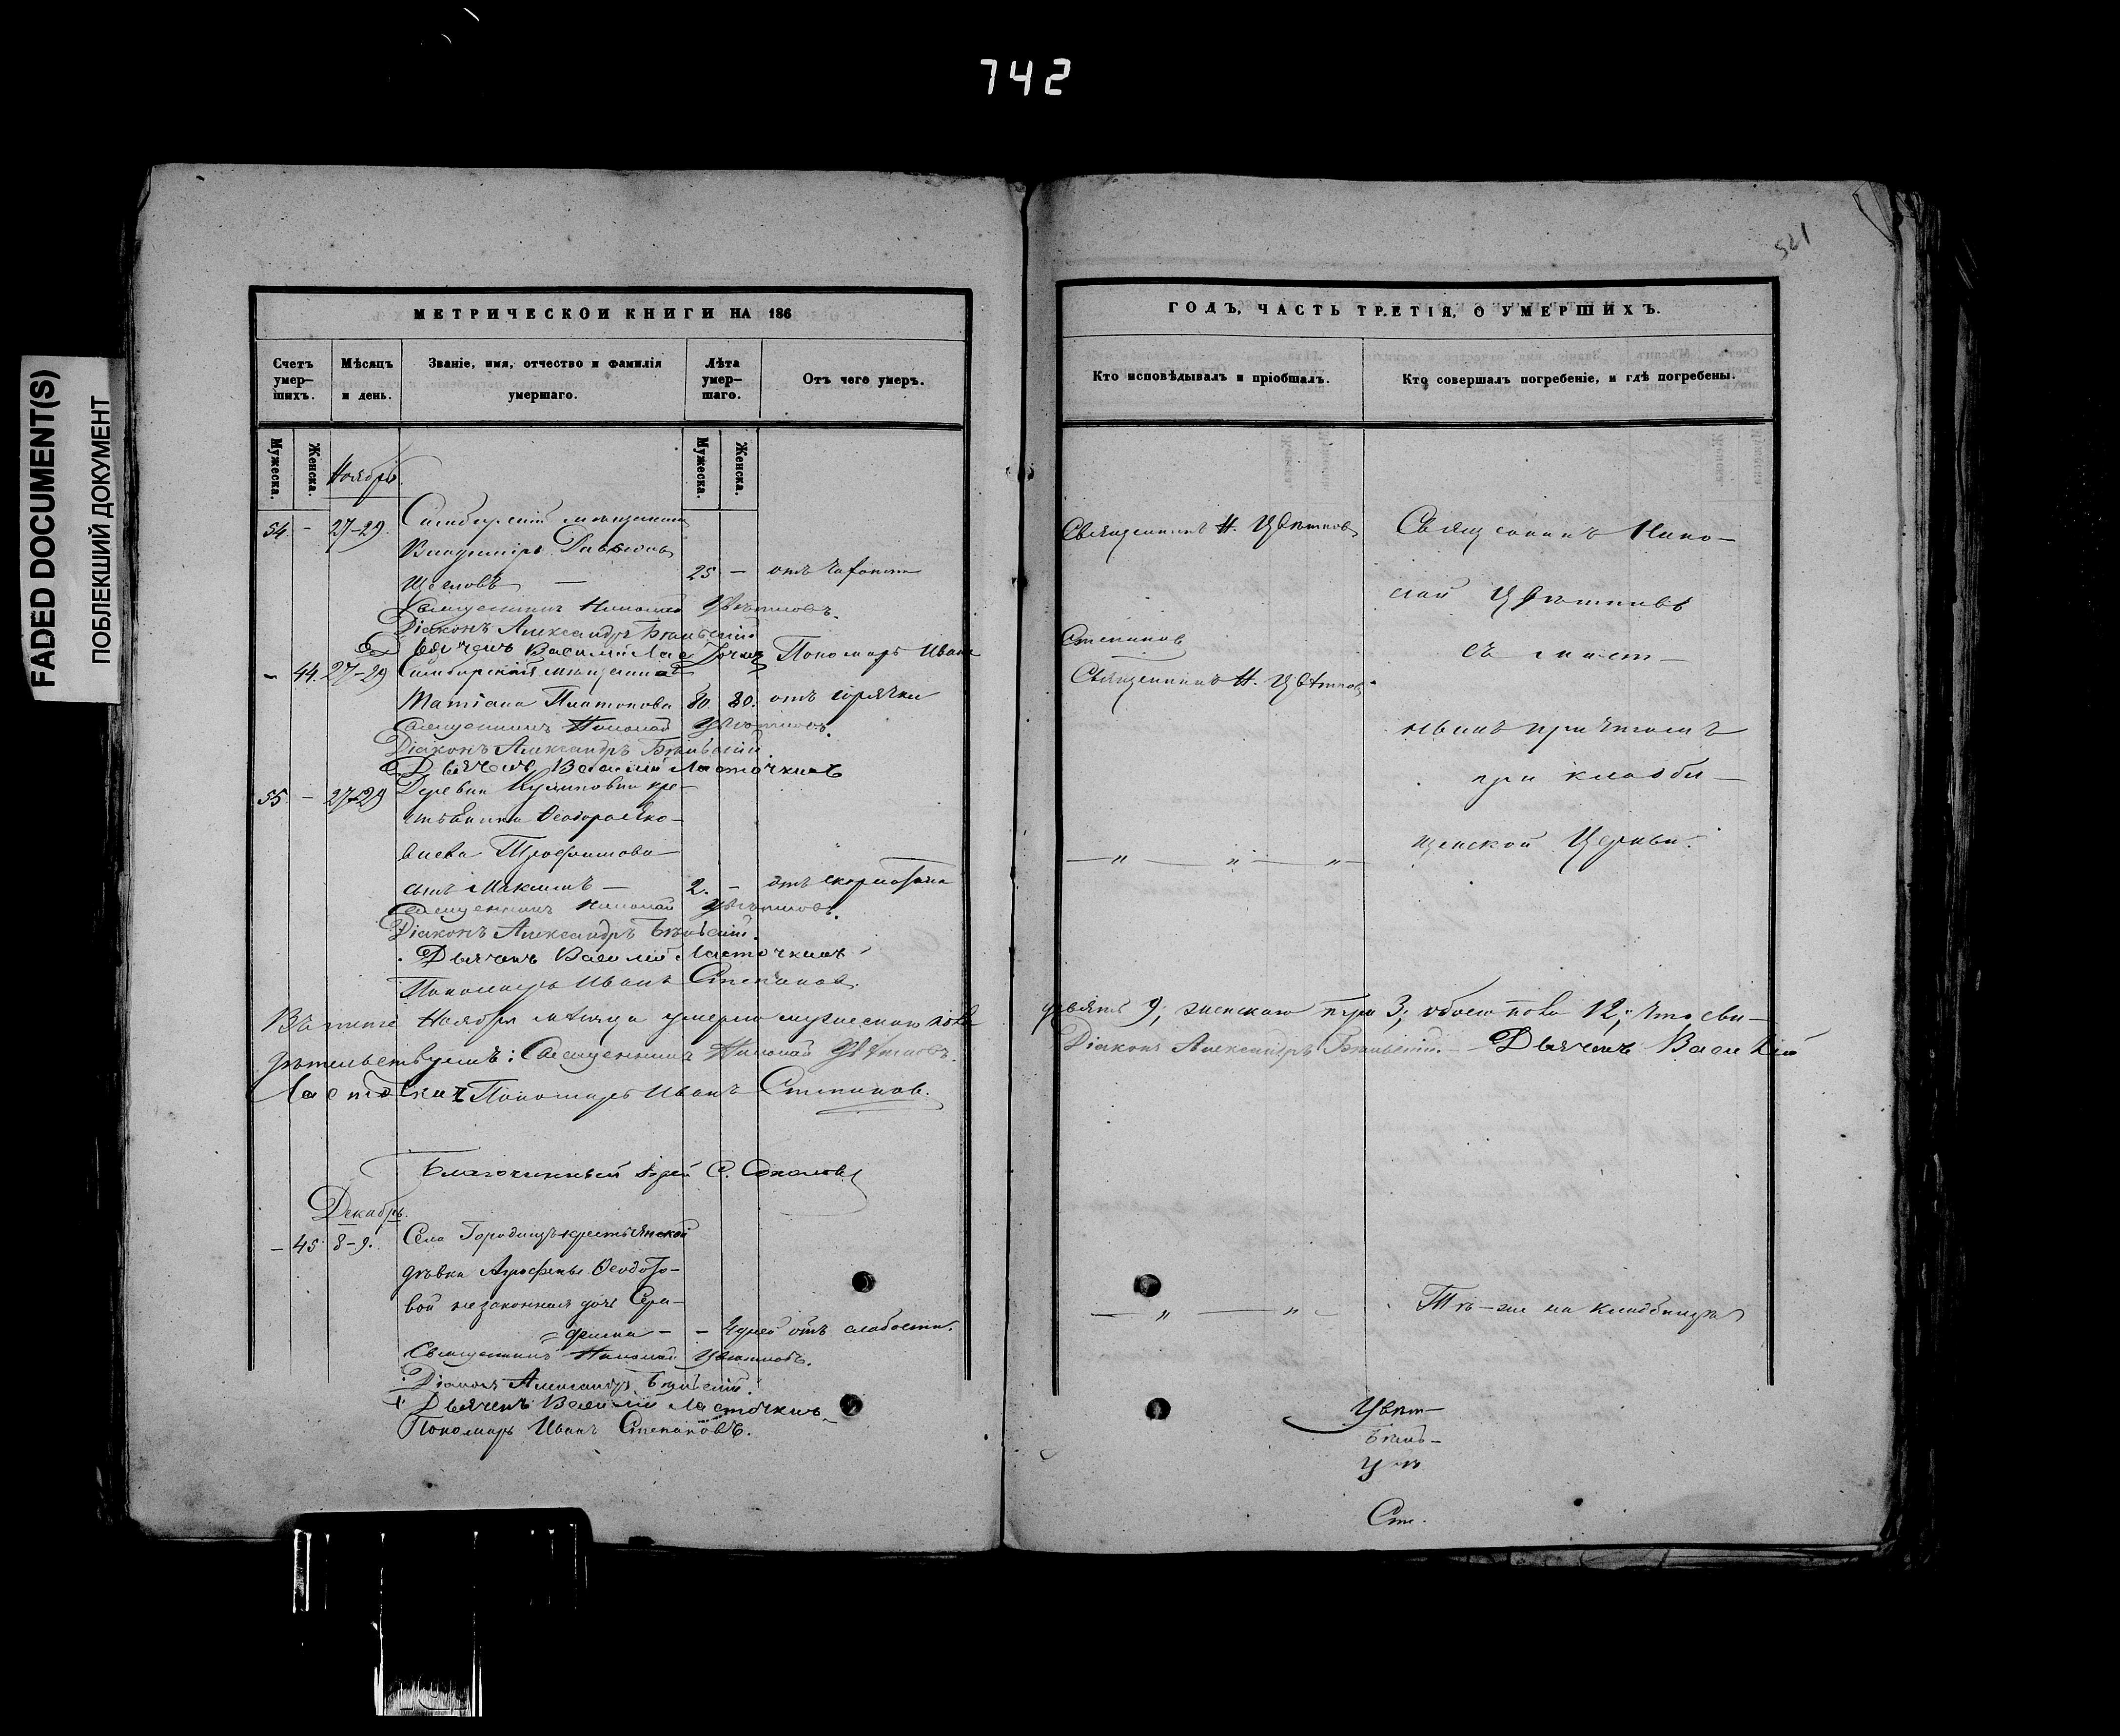 742
FADED DOCUMENT(S)
ПОБЛЕКШИЙ ДОКУМЕНТ
521
МЕТРИЧЕСКОЙ КНИГИ НА 186
Счетъ умер-шихъ.
Мѣсяцъ и день.
Званіе, имя, отчество и фамилія умершаго.
Лѣта умер-шаго.
Отъ чего умеръ.
Мужеска.
Женска.
Мужеска.
Женска.
Ноябрь.
54. - 27-29. Симбирскій мѣщанинъ
Владиміръ
25 - отъ
Священникъ Николай Цвѣтковъ.
Діаконъ Александръ
Дьячекъ Василій Ласточкинъ Пономарь Иванъ
- 44. 27-29 Симбирская мѣщанка
Татіана Платонова 80. 80. отъ горячки
Священникъ Николай Цвѣтковъ.
Діаконъ Александръ
Дьячекъ Василій Ласточкинъ
55. - 27-29 Деревни Куликовки кре-
стьянина Ѳеодора Яко-
влева Трофимова
сынъ Максимъ - 2. - отъ
Священникъ Николай Цвѣтковъ.
Діаконъ Александръ
Дьячекъ Василій Ласточкинъ
Пономарь Иванъ Степановъ.
Въ Ноябрѣ мѣсяцѣ умерло мужескаго пола
дѣтельствуемъ: Священникъ Николай Цвѣтковъ.
Ласточкинъ Пономарь Иванъ Степановъ.
Благочинный Іерей С. Соколовъ
Декабрь.
- 45 8-9. Села Городищъ крестьянской
дѣвки Агрофены Ѳеодото-
вой незаконная дочь Сера-
фима - - 4 дней отъ слабости.
Священникъ Николай Цвѣтковъ.
Діаконъ Александръ
Дьячекъ Василій Ласточкинъ
Пономарь Иванъ Степановъ.
ГОДЪ, ЧАСТЬ ТРЕТІЯ, О УМЕРШИХЪ.
Кто исповѣдывалъ и пріобщалъ.
Кто совершалъ погребеніе, и гдѣ погребены.
Священникъ Н. Цвѣтковъ
Степановъ
Священникъ Н. Цвѣтковъ
Священникъ Нико-
лай Цвѣтковъ
съ мѣст-
нымъ причтомъ
при кладби-
щенской Церкви.
девять 9; женскаго три 3; обоего пола 12; что сви-
Діаконъ Александръ Дьячекъ Василій
Тѣ-же на кладбищѣ
Цвѣт-
Сте.